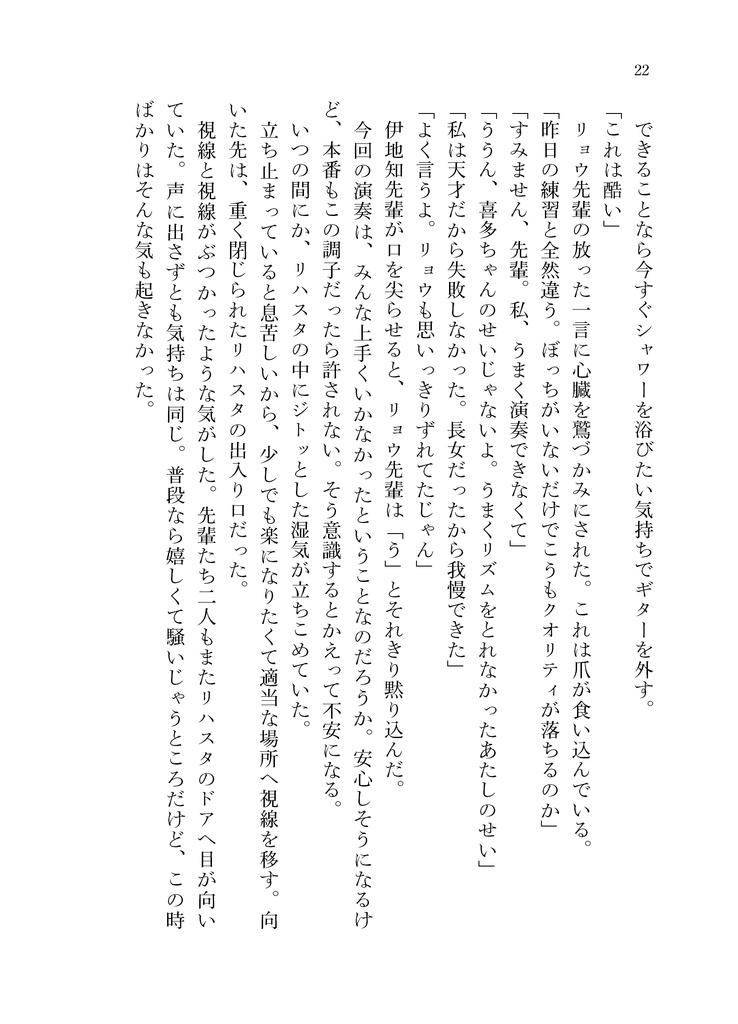 22
できることなら今すぐシャワーを浴びたい気持ちでギターを外す。
「これは酷い」
リョウ先輩の放った一言に心臓を鷲づかみにされた。これは爪が食い込んでいる。
「昨日の練習と全然違う。ぼっちがいないだけでこうもクオリティが落ちるのか」
「すみません、先輩。私、うまく演奏できなくて」
「ううん、喜多ちゃんのせいじゃないよ。うまくリズムをとれなかったあたしのせい」
「私は天才だから失敗しなかった。長女だったから我慢できた」
「よく言うよ。リョウも思いっきりずれてたじゃん」
伊地知先輩が口を尖らせると、リョウ先輩は「う」とそれきり黙り込んだ。
今回の演奏は、みんな上手くいかなかったということなのだろうか。安心しそうになるけ
ど、本番もこの調子だったら許されない。そう意識するとかえって不安になる。
いつの間にか、リハスタの中にジトッとした湿気が立ちこめていた。
立ち止まっていると息苦しいから、少しでも楽になりたくて適当な場所へ視線を移す。向
いた先は、重く閉じられたリハスタの出入り口だった。
視線と視線がぶつかったような気がした。先輩たち二人もまたリハスタのドアへ目が向い
ていた。声に出さずとも気持ちは同じ。普段なら嬉しくて騒いじゃうところだけど、この時
ばかりはそんな気も起きなかった。